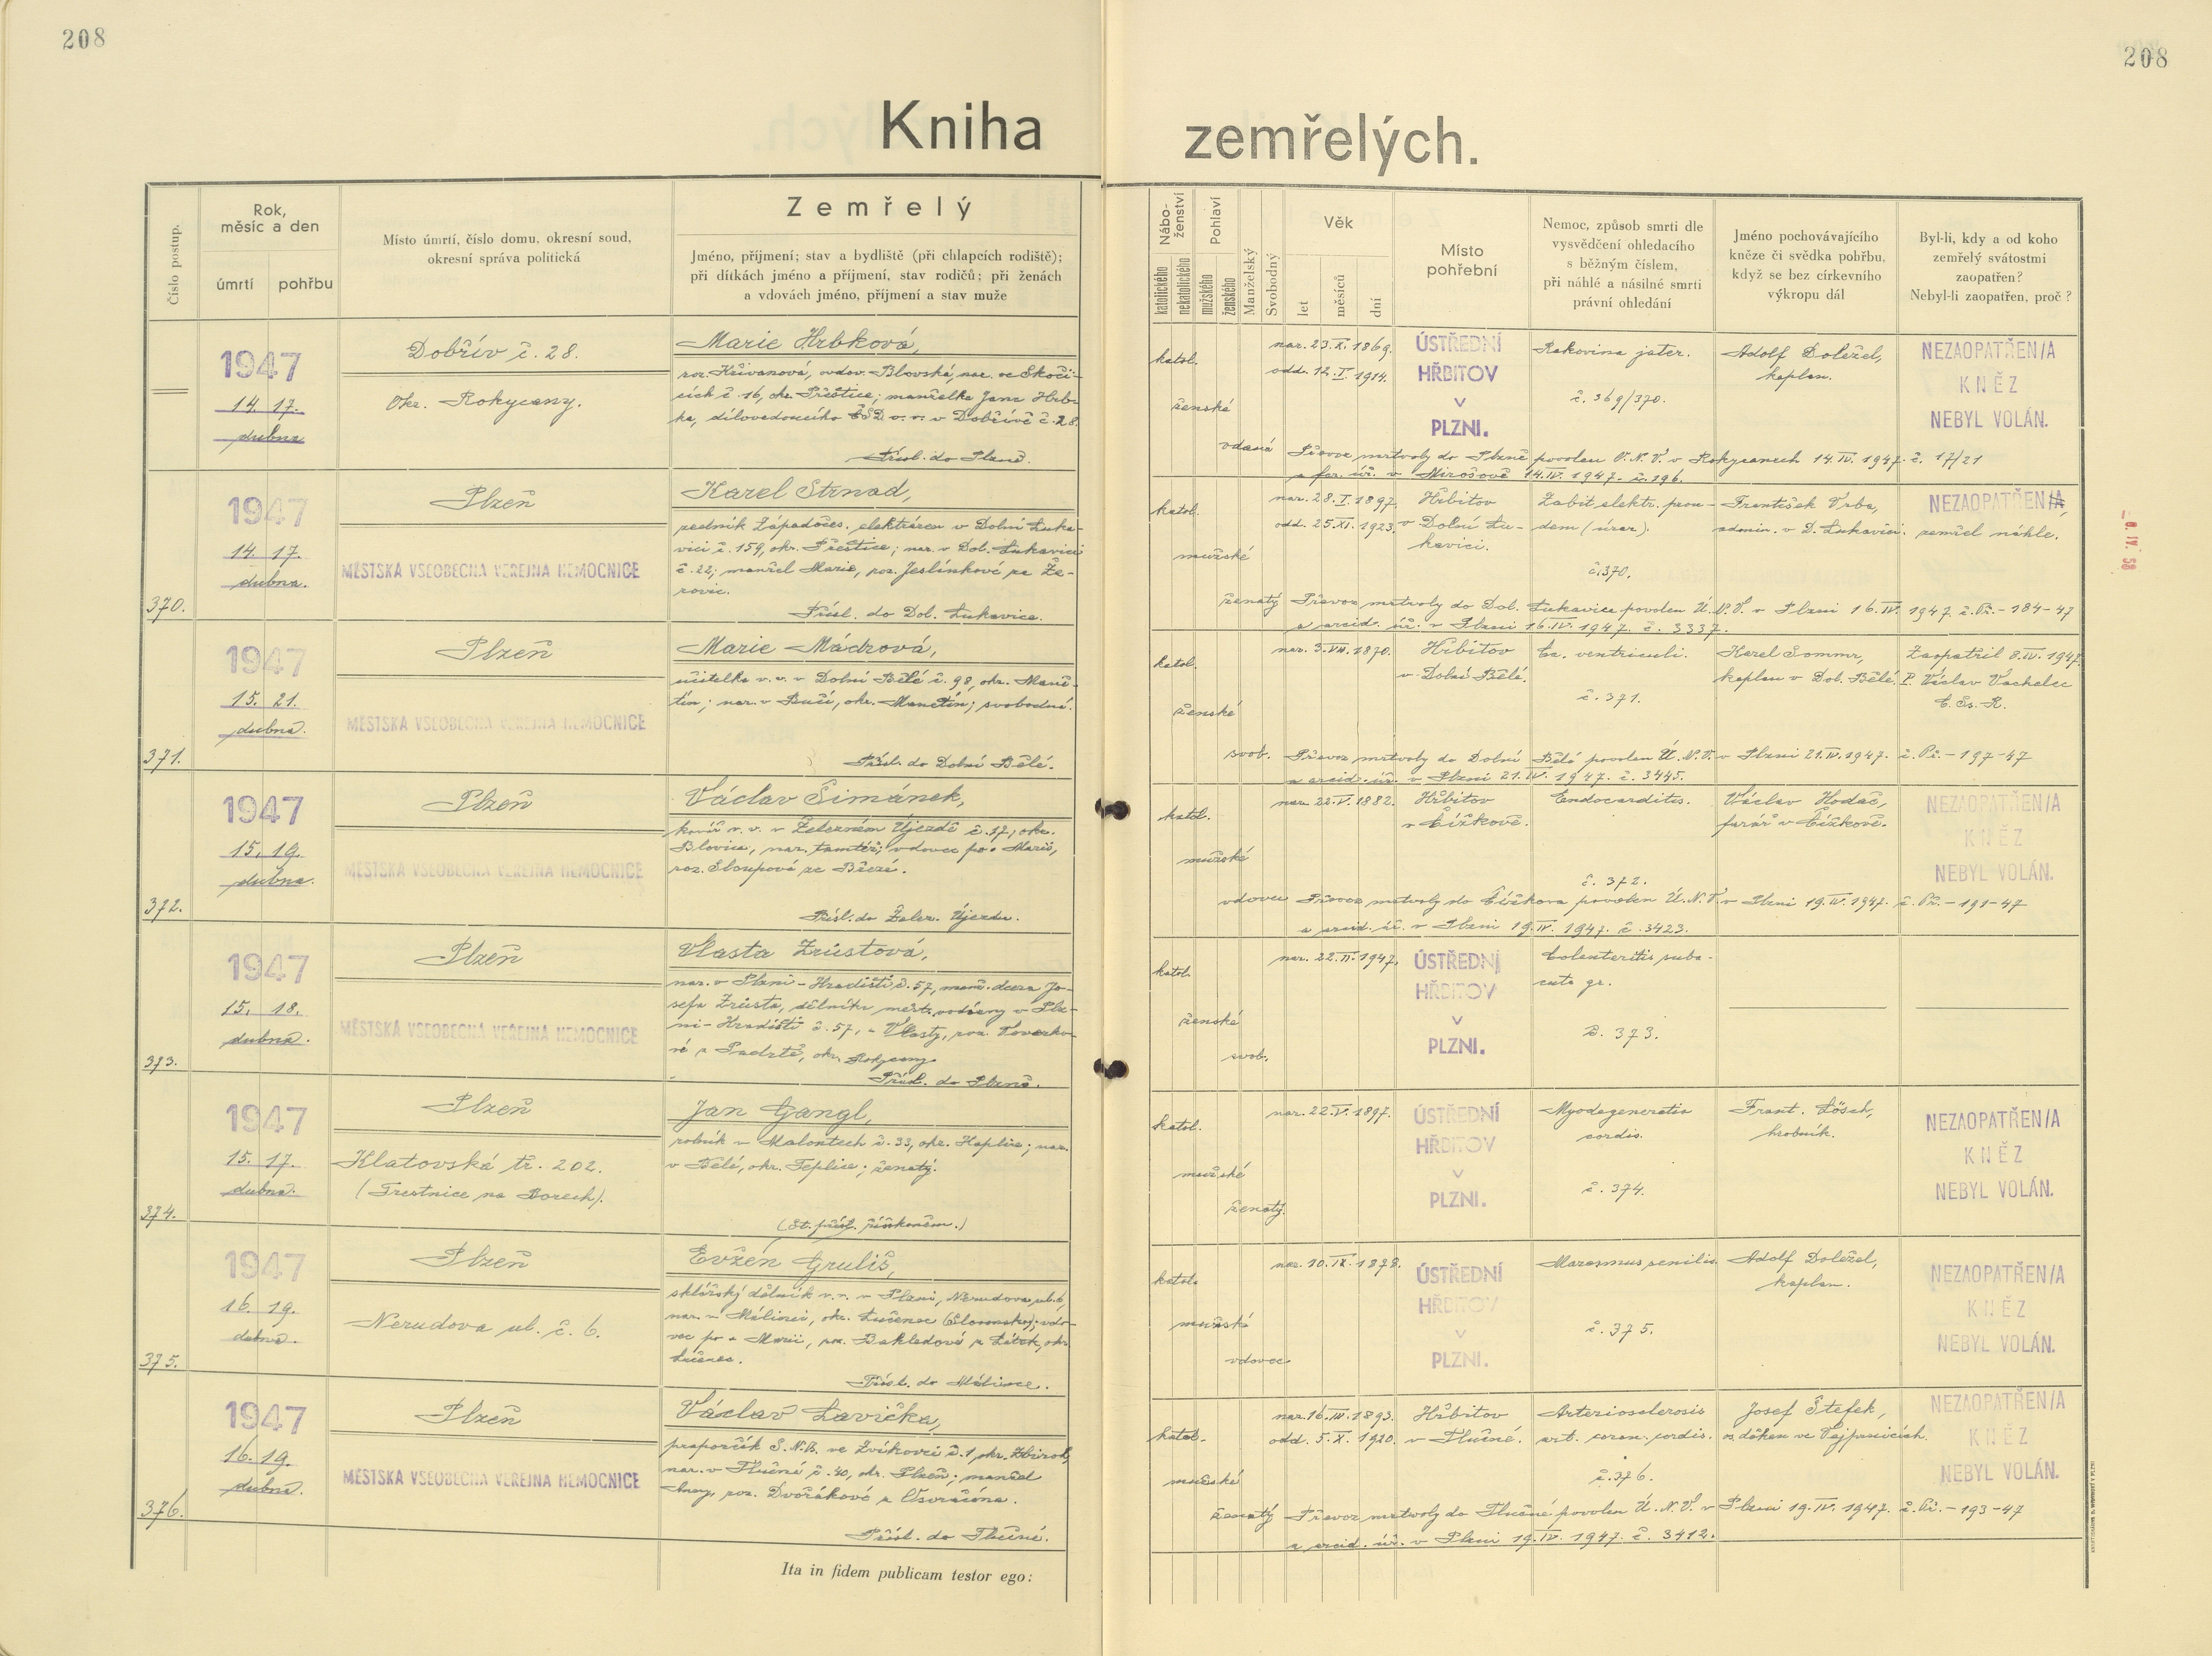 208
208
Kniha zemřelých.
Číslo postup.
Rok,
měsíc a den
úmrtí
pohřbu
Místo úmrtí, číslo domu, okresní soud,
okresní správa politická
Zemřelý
Jméno, příjmení; stav a bydliště (při chlapcích rodiště);
při dítkách jméno a příjmení, stav rodičů; při ženách
a vdovách jméno, příjmení a stav muže
Nábo-
ženství
katolického
nekatolického
Pohlaví
mužského
ženského
Manželský
Svobodný
Věk
let
měsíců
dní
Místo
pohřební
Nemoc, způsob smrti dle
vysvědčení ohledacího
s běžným číslem,
při náhlé a násilné smrti
právní ohledání
Jméno pochovávajícího
kněze či svědka pohřbu,
když se bez církevního
výkropu dál
Byl-li, kdy a od koho
zemřelý svátostmi
zaopatřen?
Nebyl-li zaopatřen, proč?
1947
14. 17.
dubna
Dobřív č. 28.
Okr. Rokycany.
Marie Hrbková,
roz. Křivanová, ovdov. Blovská, nar. ve Skoči-
cích č. 16, okr. Přeštice; manželka Jana Hrb-
ka, dílovedoucího ČSD v. v. v Dobřívě č. 28.
Přísl. do Plzně.
katol.
ženské
vdaná
nar. 23. X. 1869.
odd. 12. I. 1914.
ÚSTŘEDNÍ
HŘBITOV
V
PLZNI.
Rakovina jater.
č. 369/370.
Adolf Doležel,
kaplan.
NEZAOPATŘEN/A
KNĚZ
NEBYL VOLÁN.
Převoz mrtvoly do Plzně povolen O. N. V. v Rokycanech 14. IV. 1947. č. 17/21
a far. úř. v Mirošově 14. IV. 1947. č. 196.
370.
1947
14. 17.
dubna.
Plzeň
MĚSTSKÁ VŠEOBECNÁ VEŘEJNÁ NEMOCNICE
Karel Strnad,
zedník Západočes. elektráren v Dolní Luka-
vici č. 159, okr. Přeštice; nar. v Dol. Lukavici
č. 22; manžel Marie, roz. Jeslínkové ze Že-
rovic.
Přísl. do Dol. Lukavice.
katol.
mužské
ženatý
nar. 28. I. 1897.
odd. 25. XI. 1923.
Hřbitov
v Dolní Lu-
kavici.
Zabit elektr. prou-
dem (úraz).
č. 370.
František Vrba,
admin. v D. Lukavici.
NEZAOPATŘEN/A,
zemřel náhle.
Převoz mrtvoly do Dol. Lukavice povolen Ú. N. V. v Plzni 16. IV. 1947. č. Př. - 184-47
a arcid. úř. v Plzni 16. IV. 1947. č. 3337.
371.
1947
15. 21.
dubna.
Plzeň
MĚSTSKÁ VŠEOBECNÁ VEŘEJNÁ NEMOCNICE
Marie Mádrová,
učitelka v. v. v Dolní Bělé č. 98, okr. Maně-
tín; nar. v Bučí, okr. Manětín; svobodná.
Přísl. do Dolní Bělé.
katol.
ženské
svob.
nar. 3. VII. 1870.
Hřbitov
v Dolní Bělé.
Ca. ventriculi.
č. 371.
Karel Sommr,
kaplan v Dol. Bělé.
Zaopatřil 8. IV. 1947.
P. Václav Vachelec
C. Ss. R.
Převoz mrtvoly do Dolní Bělé povolen Ú. N. V. v Plzni 21. IV. 1947. č. Př. - 197-47
a arcid. úř. v Plzni 21. IV. 1947. č. 3445.
372.
1947
15. 19.
dubna.
Plzeň
MĚSTSKÁ VŠEOBECNÁ VEŘEJNÁ NEMOCNICE
Václav Šimánek,
kovář v. v. v Železném Újezdě č. 17, okr.
Blovice, nar. tamtéž; vdovec po Marii,
roz. Sloupové ze Březí.
Přísl. do Želez. Újezdu.
katol.
mužské
vdovec
nar. 22. V. 1882.
Hřbitov
v Čížkově.
Endocarditis.
č. 372.
Václav Hodač,
farář v Čížkově.
NEZAOPATŘEN/A
KNĚZ
NEBYL VOLÁN.
Převoz mrtvoly do Čížkova povolen Ú. N. V. v Plzni 19. IV. 1947. č. Př. - 191-47
a arcid. úř. v Plzni 19. IV. 1947. č. 3423.
373.
1947
15. 18.
dubna.
Plzeň
MĚSTSKÁ VŠEOBECNÁ VEŘEJNÁ NEMOCNICE
Vlasta Zrůstová,
nar. v Plzni - Hradišti č. 57, manž. dcera Jo-
sefa Zrůsta, dělníka městs. vodárny v Plz-
ni - Hradišti č. 57, a Vlasty, roz. Kovářo-
vé z Padrtě, okr. Rokycany.
Přísl. do Plzně.
katol.
ženské
svob.
nar. 22. II. 1947.
ÚSTŘEDNÍ
HŘBITOV
V
PLZNI.
Colenteritis suba-
cuta gr.
č. 373.
374.
1947
15. 17.
dubna.
Plzeň
Klatovská tř. 202.
(Trestnice na Borech).
Jan Gangl,
rolník v Malontech č. 33, okr. Kaplice; nar.
v Bělé, okr. Teplice; ženatý.
(St. přísl. říšskoněm.)
katol.
mužské
ženatý.
nar. 22. V. 1897.
ÚSTŘEDNÍ
HŘBITOV
V
PLZNI.
Myodegeneratio
cordis.
č. 374.
Frant. Lösch,
hrobník.
NEZAOPATŘEN/A
KNĚZ
NEBYL VOLÁN.
375.
1947
16. 19.
dubna.
Plzeň
Nerudova ul. č. 6.
Evžen Gruliš,
sklářský dělník v. v. v Plzni, Nerudova ul. 6,
nar. v Málinci, okr. Lučenec (Slovensko); vdo-
vec po Marii, roz. Bakledové z Látek, okr.
Lučenec.
Přísl. do Málince.
katol.
mužské
vdovec.
nar. 10. IX. 1878.
ÚSTŘEDNÍ
HŘBITOV
V
PLZNI.
Marasmus senilis.
č. 375.
Adolf Doležel,
kaplan.
NEZAOPATŘEN/A
KNĚZ
NEBYL VOLÁN.
376.
1947
16. 19.
dubna.
Plzeň
MĚSTSKÁ VŠEOBECNÁ VEŘEJNÁ NEMOCNICE
Václav Lavička,
praporčík S. N. B. ve Zvíkovci č. 1, okr. Zbiroh,
nar. v Tlučné č. 40, okr. Plzeň; manžel
Anny, roz. Dvořákové z
Přísl. do Tlučné.
katol.
mužské
ženatý
nar. 16. III. 1893.
odd. 5. X. 1920.
Hřbitov
v Tlučné.
Arteriosclerosis
art. coron. cordis.
č. 376.
Josef Štefek,
děkan ve Vejprnicích.
NEZAOPATŘEN/A
KNĚZ
NEBYL VOLÁN.
Převoz mrtvoly do Tlučné povolen Ú. N. V. v Plzni 19. IV. 1947. č. Př. - 193-47
a arcid. úř. v Plzni 19. IV. 1947. č. 3412.
Ita in fidem publicam testor ego: